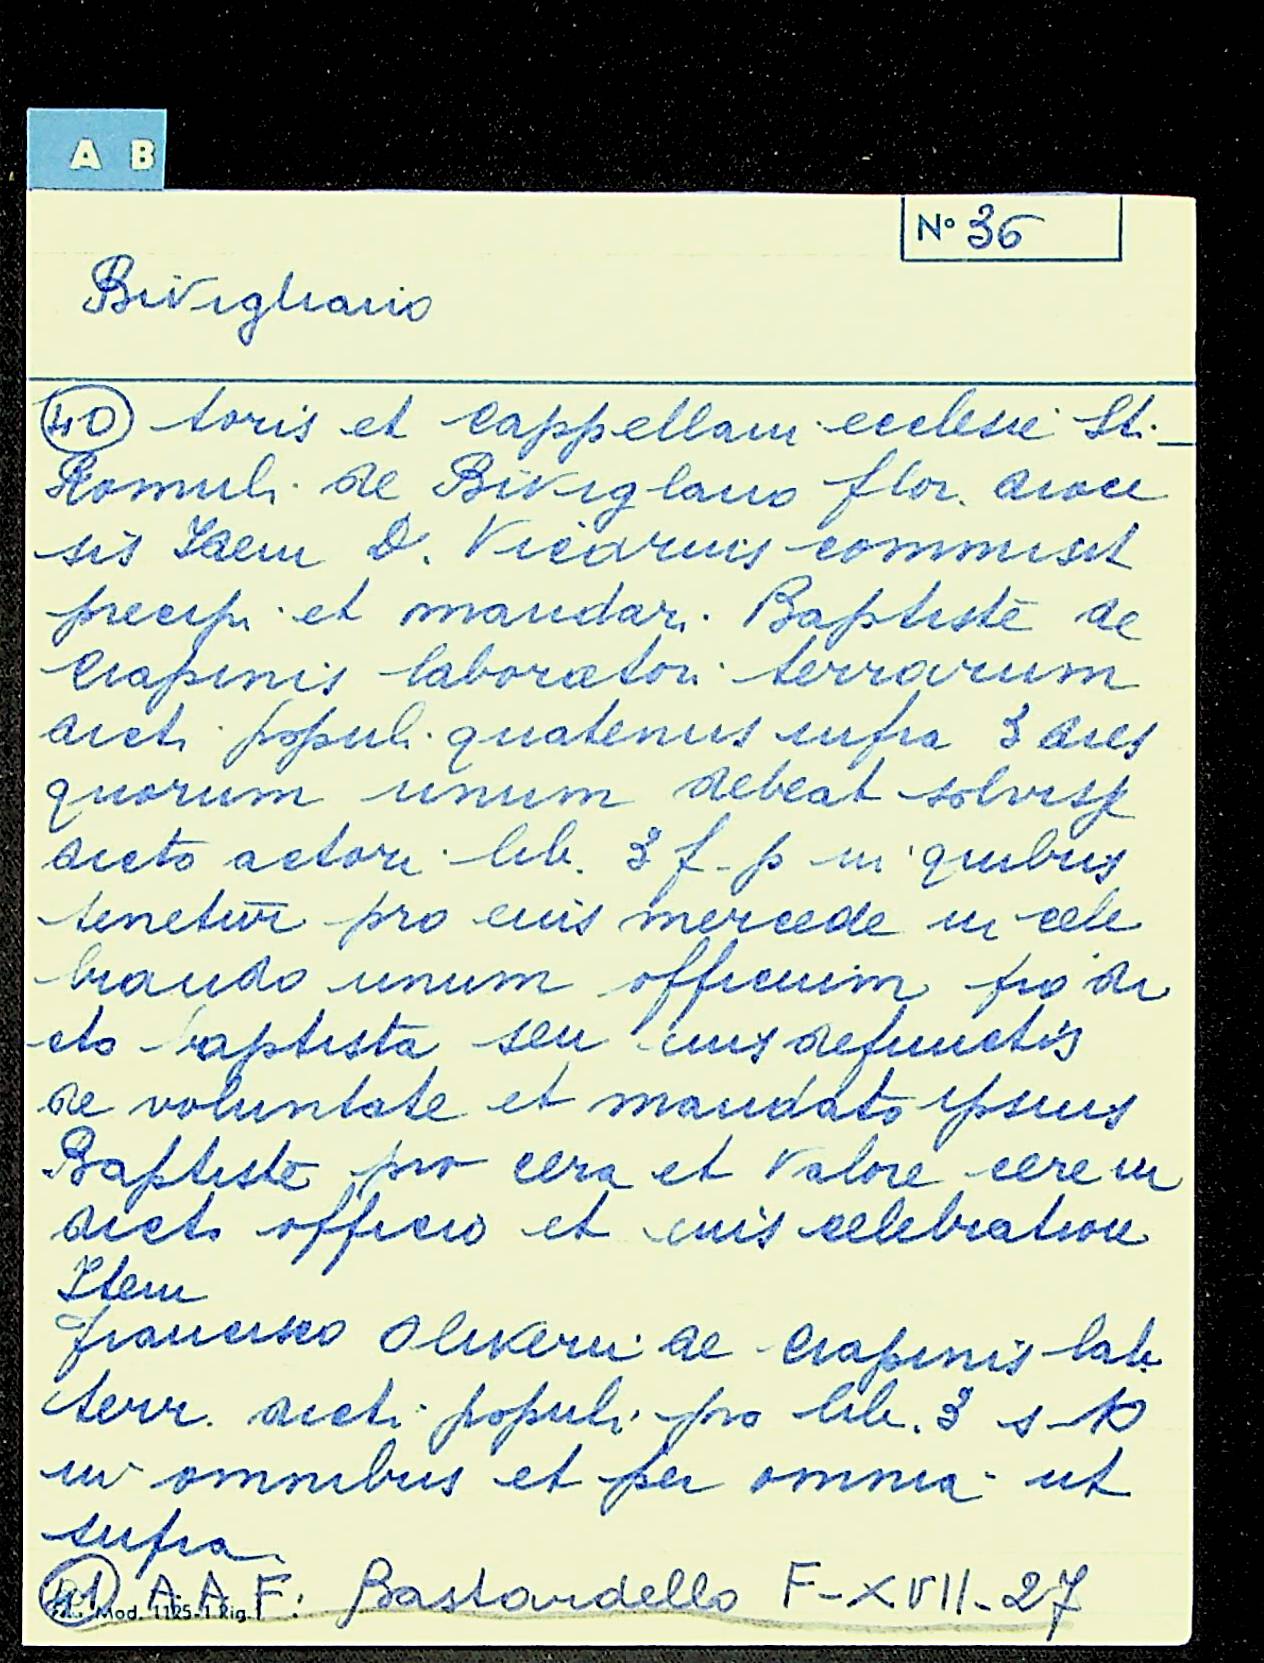 A B
N° 36
Bivigliano
40 toris et cappellam ecclesie St.
Romuli de Biviglano flor. dioce
sis Idem D. Vicarius commisit
precipi et mandari Baptiste de
Ciapinis laboratori terrarum
dicti populi quatenus infra 3 dies
quorum unum debeat solvisse
dicto actori lib. 3 f. p in quibus
tenetur pro eius mercede in cele
brando unum officium pro di
cto baptista seu eius defunctis
de voluntate et mandato ipsius
Baptiste pro cera et valore cere in
dicto officio et eius celebratione
Item
Francisco Oliverii de Ciapinis lab.
terr. dicti populi pro lib. 3 s 10
in omnibus et per omnia ut
supra
41 A.A.F. Bastardello F-XVII-27
Mod. 1125-1 Rig.